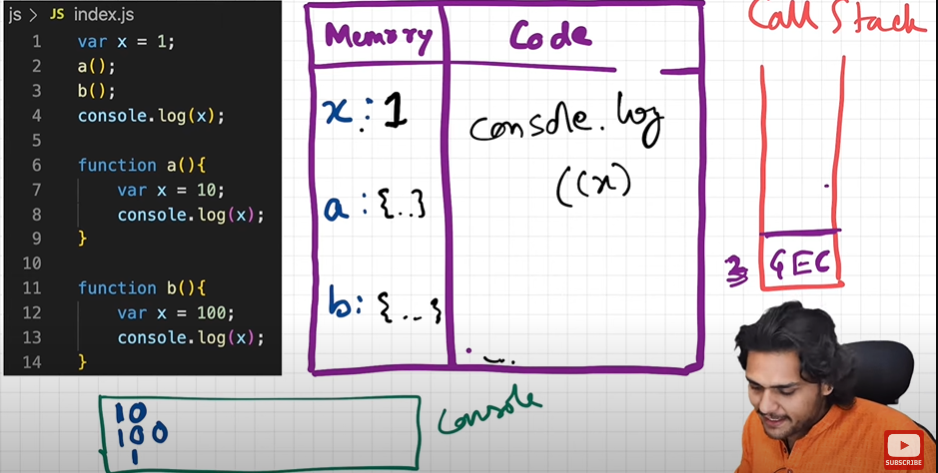 js > JS index.js
1 var x = 1;
2 a();
3 b();
4 console.log(x);
5
6 function a(){
7 var x = 10;
8 console.log(x);
9 }
10
11 function b(){
12 var x = 100;
13 console.log(x);
14 }
Memory Code
x: 1
a: {..}
b: {...}
console.log
((x)
Call Stack
GEC
10
100
1
Console
SUBSCRIBE